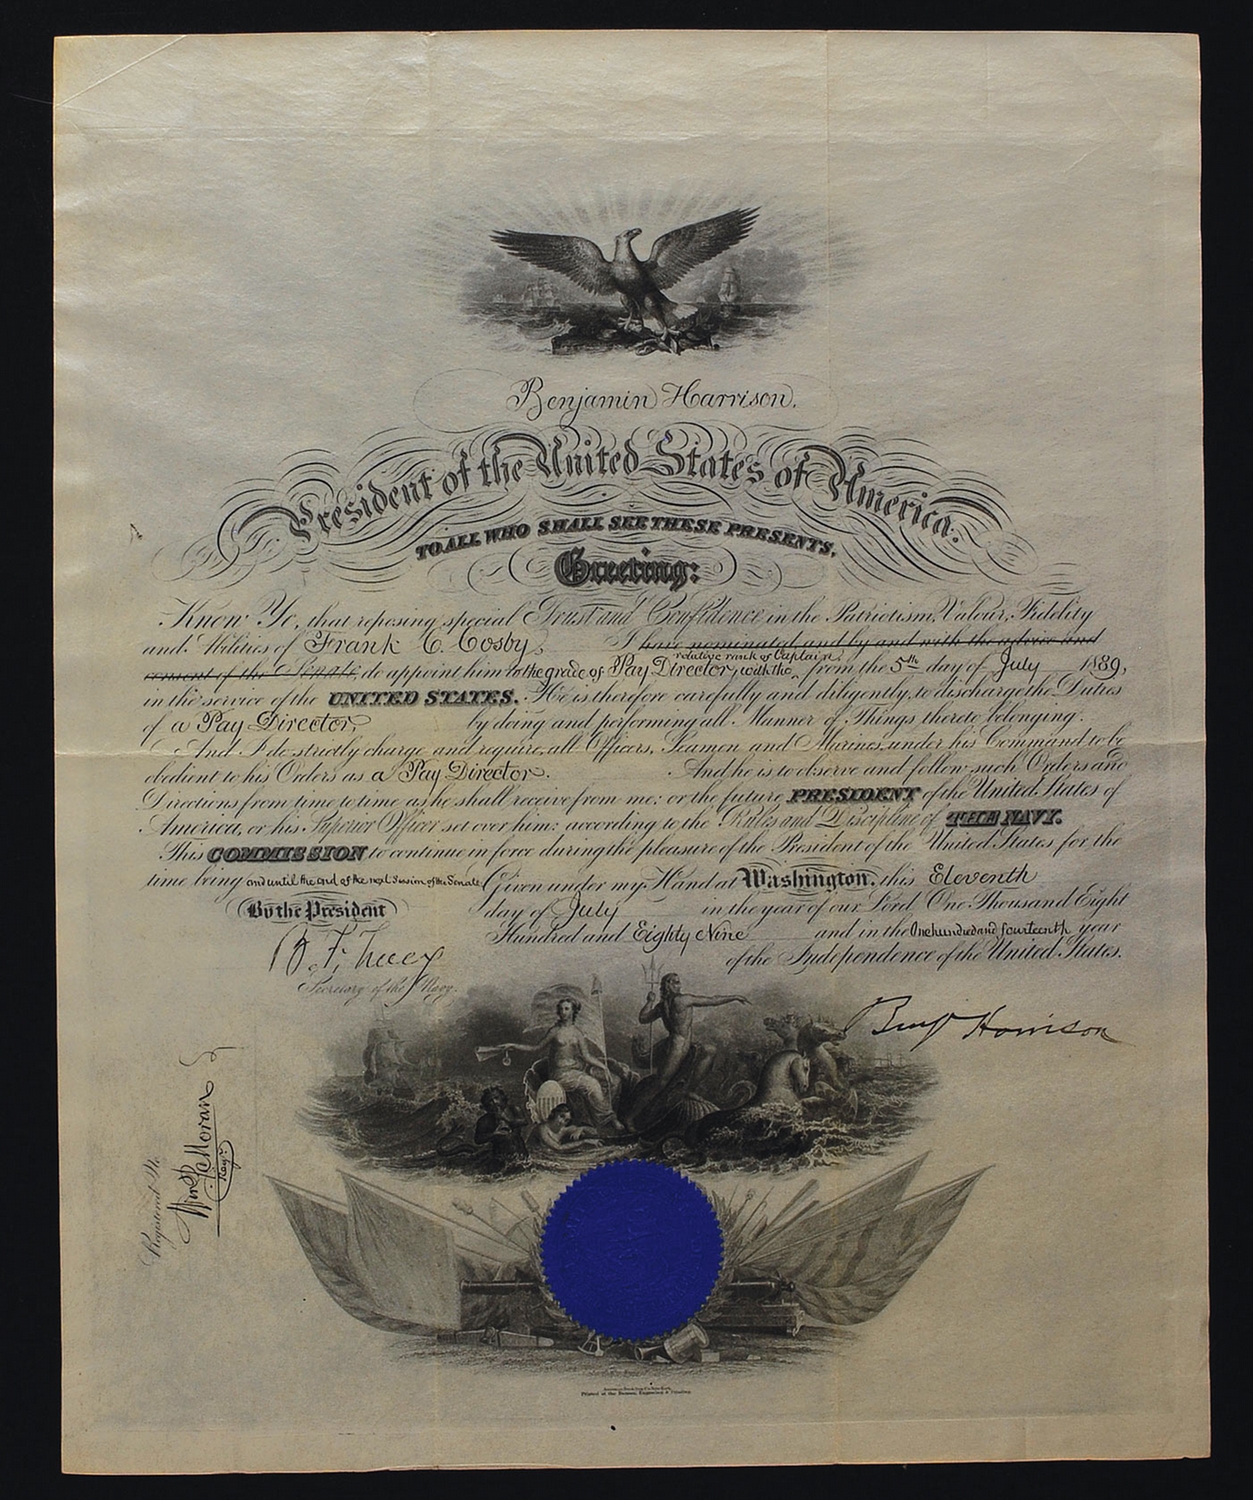 Benjamin Harrison.
President of the United States of America.
TO ALL WHO SHALL SEE THESE PRESENTS,
Greeting:
Know Ye, that reposing special Trust and Confidence in the Patriotism, Valour, Fidelity
and Abilities of Frank C. Cosby, I have nominated and by and with the advice and
relative rank of Captain,
consent of the Senate, do appoint him to the grade of Pay Director, with the from the 5th day of July 1889,
in the service of the UNITED STATES. He is therefore carefully and diligently, to discharge the Duties
of a Pay Director by doing and performing all Manner of Things thereto belonging.
And I do strictly charge and require, all Officers, Seamen and Marines, under his Command to be
obedient to his Orders as a Pay Director. And he is to observe and follow such Orders and
Directions from time to time as he shall receive from me: or the future PRESIDENT of the United States of
America, or his Superior Officer set over him: according to the Rules and Discipline of THE NAVY.
This COMMISSION to continue in force during the pleasure of the President of the United States for the
time being and until the end of the next Session of the Senate. Given under my Hand at Washington, this Eleventh
By the President day of July in the year of our Lord One Thousand Eight
Hundred and Eighty Nine and in the One hundred and fourteenth year
of the Independence of the United States.
B. F. Tracy
Secretary of the Navy.
Benj Harrison
Registered No.
Wm P. Moran
Regr.
Printed at the Bureau, Engraving & Printing.